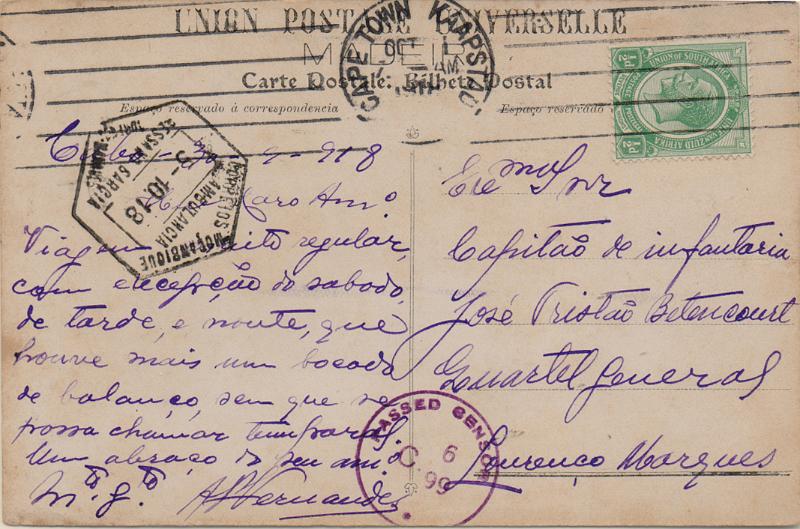 UNION POSTALE UNIVERSELLE
MADEIR
Carte Postale: Bilhete Postal
Espaço reservado à correspondencia
Espaço reservado
CAPETOWN KAAPSTAD
OCT 1
AM
½P.D UNION OF SOUTH AFRICA
UNIE VAN ZUID AFRIKA ½P.D
CORREIOS MOÇAMBIQUE
AMBULANCIA
3-10.18
RESSANO GARCIA
9-918
Meu Caro Amº
Viagem muito regular,
com excepção do sabado
de tarde, e noute, que
houve mais um bocado
de balanço, sem que se
possa chamar temporal
Um abraço do seu amº
Mtº gtº
AFernandes
Exmo Snr
Capitão de infantaria
José Tristão Betencourt
Quartel General
Lourenço Marques
PASSED CENSOR
C. 6
99